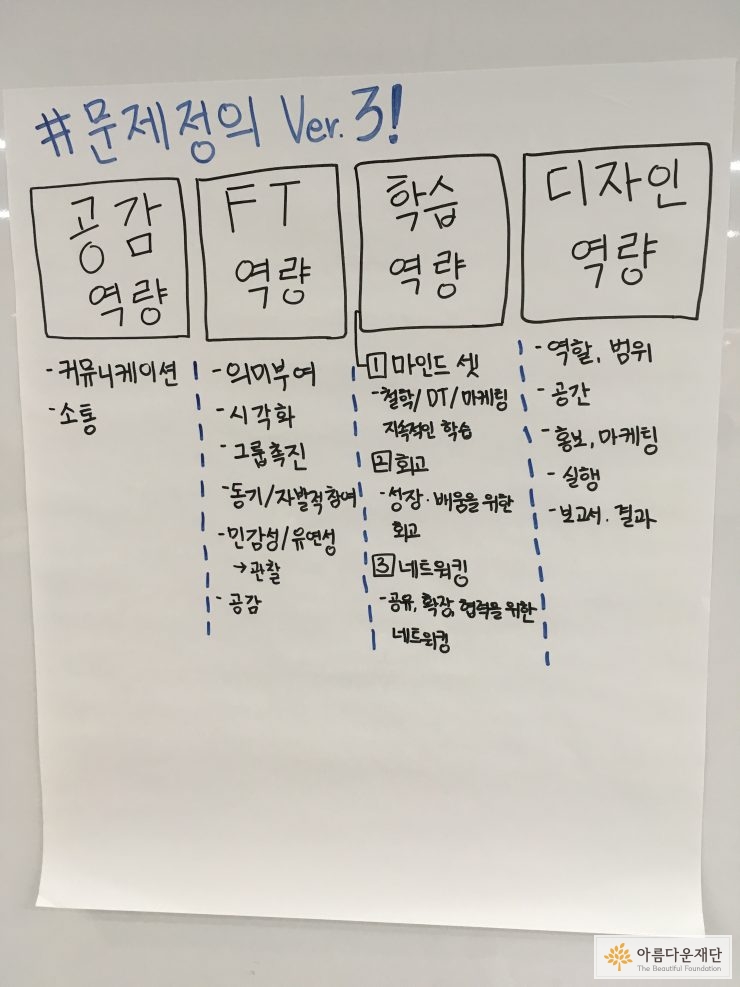 #문제정의 Ver. 3!
공감
역량
- 커뮤니케이션
- 소통
FT
역량
- 의미부여
- 시각화
- 그룹촉진
- 동기/자발적참여
- 민감성/유연성
→ 관찰
- 공감
학습
역량
1 마인드 셋
- 철학/DT/마케팅
지속적인 학습
2 회고
- 성장·배움을 위한
회고
3 네트워킹
- 공유, 확장, 협력을 위한
네트워킹
디자인
역량
- 역할, 범위
- 공간
- 홍보, 마케팅
- 실행
- 보고서·결과
아름다운재단
The Beautiful Foundation